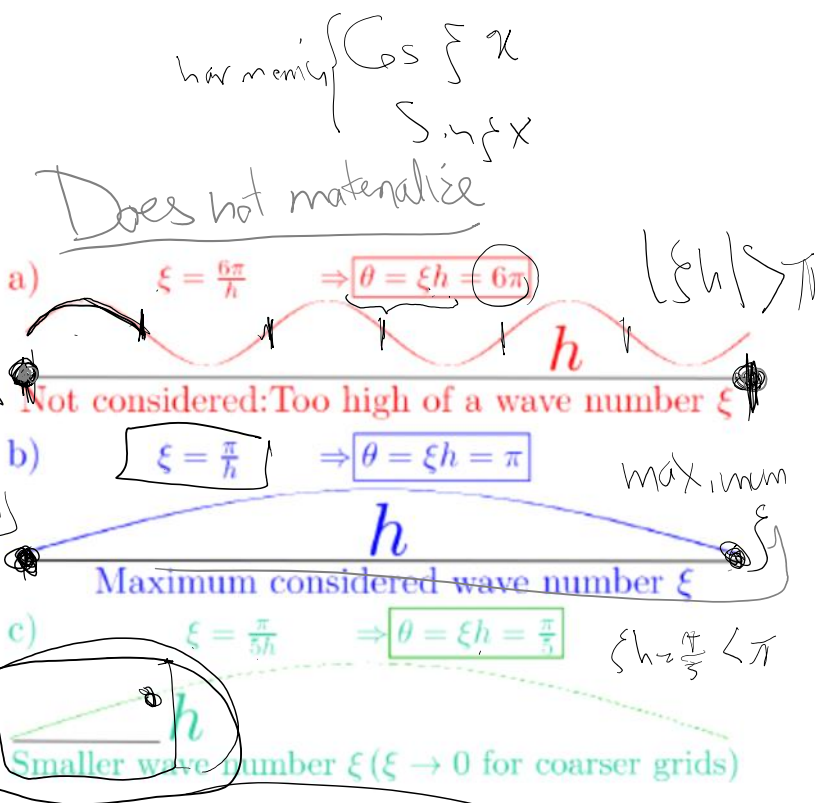 harmonic { Cos ξ x
Sin ξ x
Does not materialize
|ξh| > π
a) ξ = 6π/h ⇒ θ = ξh = 6π
h
Not considered:Too high of a wave number ξ
b) ξ = π/h ⇒ θ = ξh = π
maximum ξ
h
Maximum considered wave number ξ
c) ξ = π/5h ⇒ θ = ξh = π/5
ξh = π/5 < π
h
Smaller wave number ξ (ξ → 0 for coarser grids)